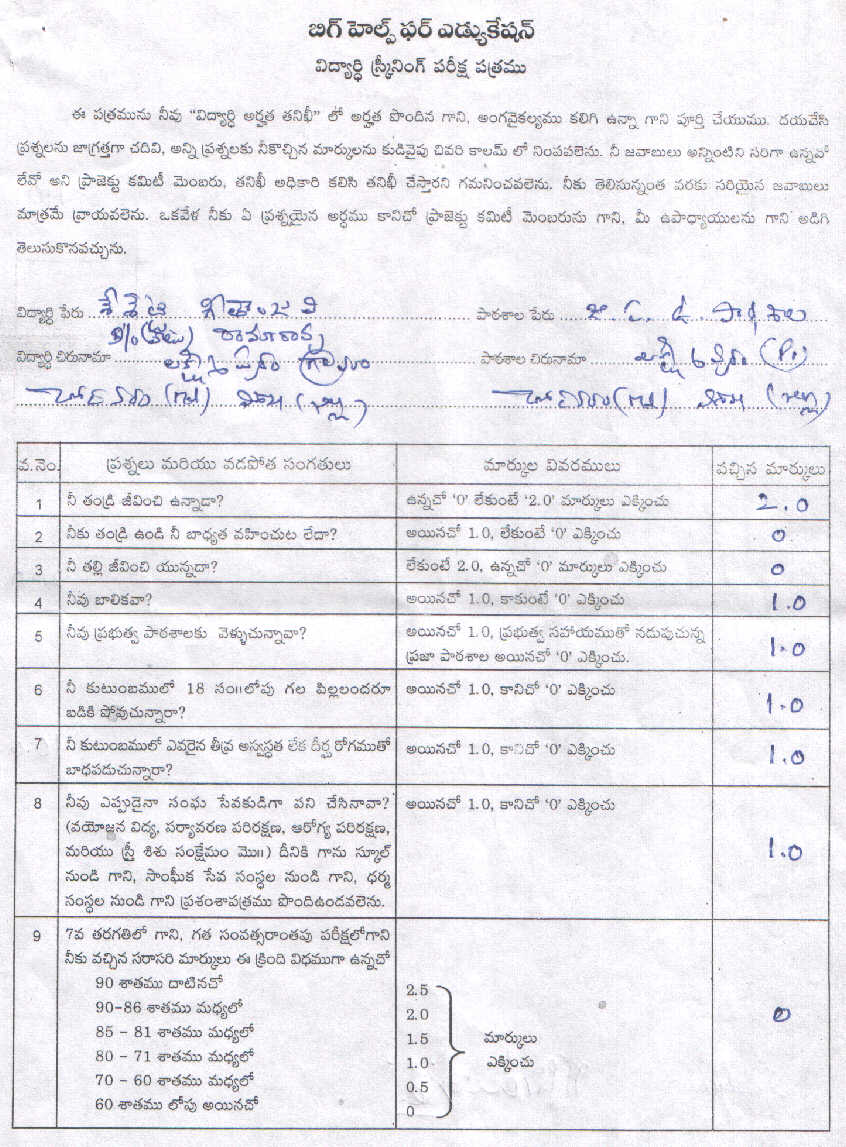 బిగ్ హెల్ప్ ఫర్ ఎడ్యుకేషన్
విద్యార్ధి స్క్రీనింగ్ పరీక్ష పత్రము
ఈ పత్రమును నీవు “విద్యార్ధి అర్హత తనిఖీ” లో అర్హత పొందిన గాని, అంగవైకల్యము కలిగి ఉన్నా గాని పూర్తి చేయుము. దయచేసి
ప్రశ్నలను జాగ్రత్తగా చదివి, అన్ని ప్రశ్నలకు నీకొచ్చిన మార్కులను కుడివైపు చివరి కాలమ్ లో నింపవలెను. నీ జవాబులు అన్నింటిని సరిగా ఉన్నవో
లేవో అని ప్రాజెక్టు కమిటీ మెంబరు, తనిఖీ అధికారి కలిసి తనిఖీ చేస్తారని గమనించవలెను. నీకు తెలిసున్నంత వరకు సరియైన జవాబులు
మాత్రమే వ్రాయవలెను. ఒకవేళ నీకు ఏ ప్రశ్నయైన అర్ధము కానిచో ప్రాజెక్టు కమిటీ మెంబరును గాని, మీ ఉపాధ్యాయులను గాని అడిగి
తెలుసుకొనవచ్చును.
విద్యార్ధి పేరు పాఠశాల పేరు జి. ప. ఉ. పాఠశాల
రామారావు
విద్యార్ధి చిరునామా గ్రామం పాఠశాల చిరునామా
వ.నెం. ప్రశ్నలు మరియు వడపోత సంగతులు మార్కుల వివరములు వచ్చిన మార్కులు
1 నీ తండ్రి జీవించి ఉన్నాడా? ఉన్నచో ‘0’ లేకుంటే ‘2.0’ మార్కులు ఎక్కించు 2.0
2 నీకు తండ్రి ఉండి నీ బాధ్యత వహించుట లేదా? అయినచో 1.0, లేకుంటే ‘0’ ఎక్కించు 0
3 నీ తల్లి జీవించి యున్నదా? లేకుంటే 2.0, ఉన్నచో ‘0’ మార్కులు ఎక్కించు 0
4 నీవు బాలికవా? అయినచో 1.0, కాకుంటే ‘0’ ఎక్కించు 1.0
5 నీవు ప్రభుత్వ పాఠశాలకు వెళ్ళుచున్నావా? అయినచో 1.0, ప్రభుత్వ సహాయముతో నడుపుచున్న 1.0
ప్రజా పాఠశాల అయినచో ‘0’ ఎక్కించు.
6 నీ కుటుంబములో 18 సం॥లోపు గల పిల్లలందరూ అయినచో 1.0, కానిచో ‘0’ ఎక్కించు 1.0
బడికి పోవుచున్నారా?
7 నీ కుటుంబములో ఎవరైన తీవ్ర అస్వస్ధత లేక దీర్ఘ రోగముతో అయినచో 1.0, కానిచో ‘0’ ఎక్కించు 1.0
బాధపడుచున్నారా?
8 నీవు ఎప్పుడైనా సంఘ సేవకుడిగా పని చేసినావా? అయినచో 1.0, కానిచో ‘0’ ఎక్కించు 1.0
(వయోజన విద్య, పర్యావరణ పరిరక్షణ, ఆరోగ్య పరిరక్షణ,
మరియు స్త్రీ శిశు సంక్షేమం మొ॥) దీనికి గాను స్కూల్
నుండి గాని, సాంఘీక సేవ సంస్థల నుండి గాని, ధర్మ
సంస్థల నుండి గాని ప్రశంశాపత్రము పొందిఉండవలెను.
9 7వ తరగతిలో గాని, గత సంవత్సరాంతపు పరీక్షలోగాని 0
నీకు వచ్చిన సరాసరి మార్కులు ఈ క్రింది విధముగా ఉన్నచో
90 శాతము దాటినచో 2.5
90-86 శాతము మధ్యలో 2.0
85 - 81 శాతము మధ్యలో 1.5 మార్కులు
80 - 71 శాతము మధ్యలో 1.0 ఎక్కించు
70 - 60 శాతము మధ్యలో 0.5
60 శాతము లోపు అయినచో 0